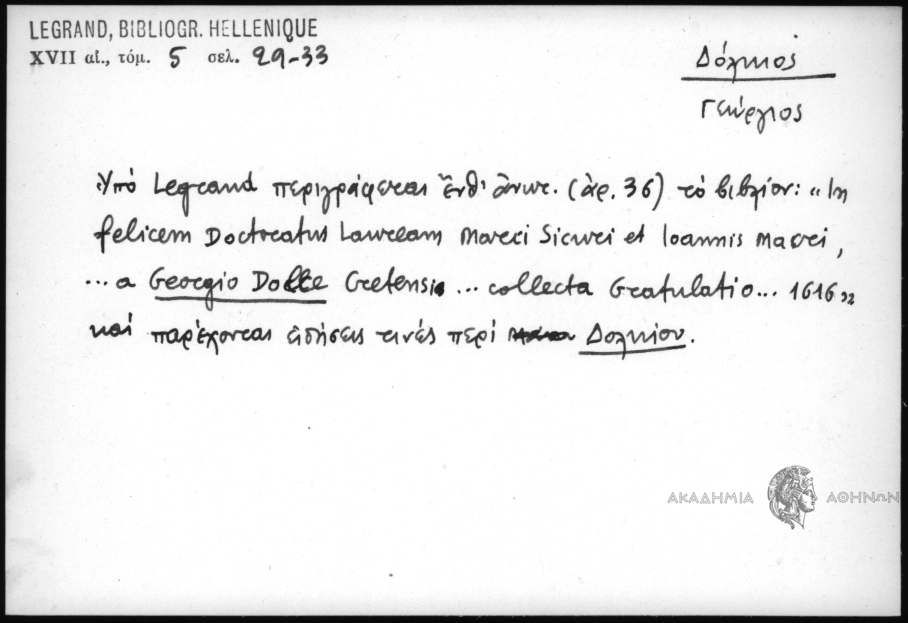 LEGRAND, BIBLIOGR. HELLENIQUE
XVII αἰ., τόμ. 5 σελ. 29-33
Δόλκιος
Γεώργιος
Ὑπό Legrand περιγράφεται ἔνθ' ἄνωτ. (ἀρ. 36) τό βιβλίον: "In
felicem Doctoratus Lauream Marci Sicuri et Ioannis Macri,
... a Georgio Dolce Cretensi ... collecta Gratulatio... 1616"
καί παρέχονται εἰδήσεις τινές περί Δολκίου.
ΑΚΑΔΗΜΙΑ ΑΘΗΝΩΝ